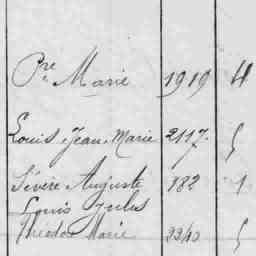 Pre Marie 1919 4
Louis Jean Marie 2117.
Sévère Auguste 182 1
Louis Jules
Théodore Marie 2240